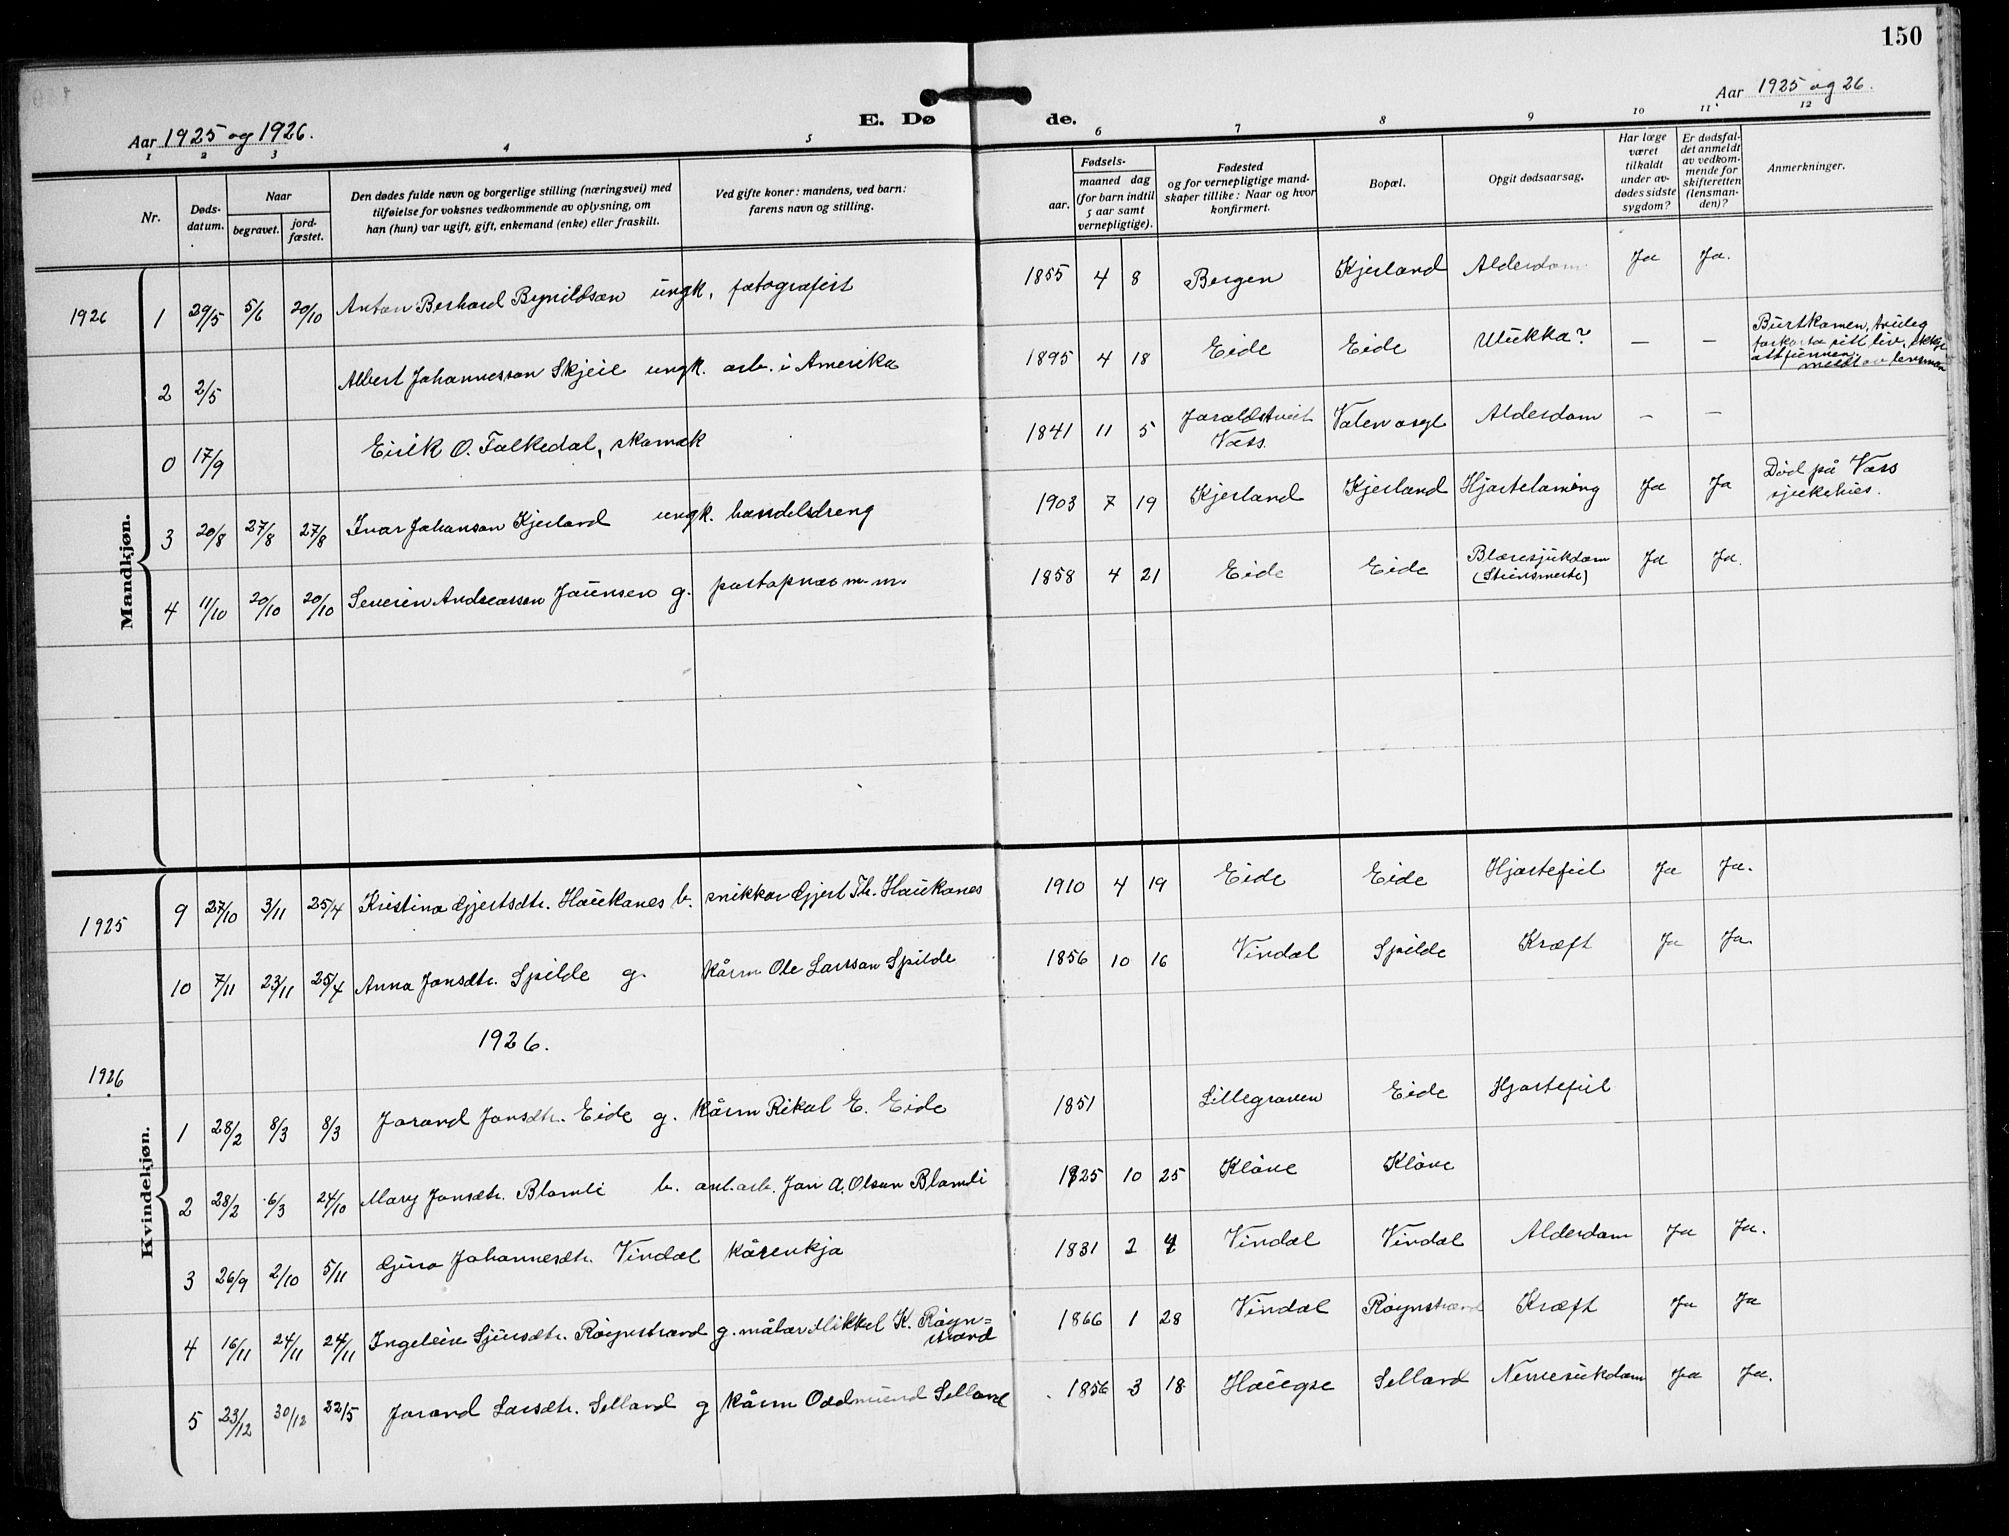 150
Aar 1925 og 1926.
E. Dø de.
Aar 1925 og 26.
1 2 3 4 5 6 7 8 9 10 11 12
Nr.
Døds-
datum.
Naar
begravet.
jord-
fæstet.
Den dødes fulde navn og borgerlige stilling (næringsvei) med
tilføielse for voksnes vedkommende av oplysning, om
han (hun) var ugift, gift, enkemand (enke) eller fraskilt.
Ved gifte koner: mandens, ved barn:
farens navn og stilling.
Fødsels-
aar.
maaned dag
(for barn indtil
5 aar samt
vernepligtige).
Fødested
og for vernepligtige mand-
skaper tillike: Naar og hvor
konfirmert.
Bopæl.
Opgit dødsaarsag.
Har læge
været
tilkaldt
under av-
dødes sidste
sygdom?
Er dødsfal-
det anmeldt
av vedkom-
mende for
skifteretten
(lensman-
den)?
Anmerkninger.
Mandkjøn.
1926 1 29/5 5/6 20/10 Anton Berhard Brynildson ungk. fotografist 1855 4 8 Bergen Kjerland Alderdom Ja Ja.
2 2/5 Albert Johannesson Skjeie ungk. arb. i Amerika 1895 4 18 Eide Eide Ulukka? — — Burtkomen, truleg
sitt liv.
attfunnen.
meldt av lensman
0 17/9 Eirik O. Falkedal, skomak 1841 11 5 Jaraldstveit
Voss. Valen asyl Alderdom — —
3 20/8 27/8 27/8 Ivar Johanson Kjerland ungk. handelsdreng 1903 7 19 Kjerland Kjerland Hjartelaming Ja Ja Död på Voss
sjukehus.
4 11/10 20/10 20/10 Severin Andreassen Jaunsen g. postopnar m. m. 1858 4 21 Eide Eide Blæresjukdom
Ja Ja.
Kvindekjøn.
1925 9 27/10 3/11 25/4 Kristina Gjertsdtr. Haukanes b. snikkar Gjert Th. Haukanes 1910 4 19 Eide Eide Hjartefeil Ja Ja.
10 7/11 23/11 25/4 Anna Jonsdtr. Spilde g. kårm Ole Larsson Spilde 1856 10 16 Vindal Spilde Kræft Ja Ja.
1926.
1926
1 28/2 8/3 8/3 Jorond Jonsdtr. Eide g. kårm Rikol E. Eide 1851 Lillegraven Eide Hjartefeil
2 28/2 6/3 24/10 Mary Jonsdtr. Blomli b. anl.arb. Jon A. Olson Blomli 1925 10 25 Klöve Klöve
3 26/9 2/10 5/11 Guro Johannesdtr. Vindal kårenkja 1831 2 4 Vindal Vindal Alderdom Ja Ja.
4 16/11 24/11 24/11 Ingeleiv Sjursdtr. Röynstrand g. målar Mikkel K. Röyn=
strand 1866 1 28 Vindal Röynstrand Kræft Ja Ja
5 23/12 30/12 22/5 Jorond Larsdtr. Selland g kårm Oddmund Selland 1856 3 18 Haugse Selland Nervesukdom Ja Ja.